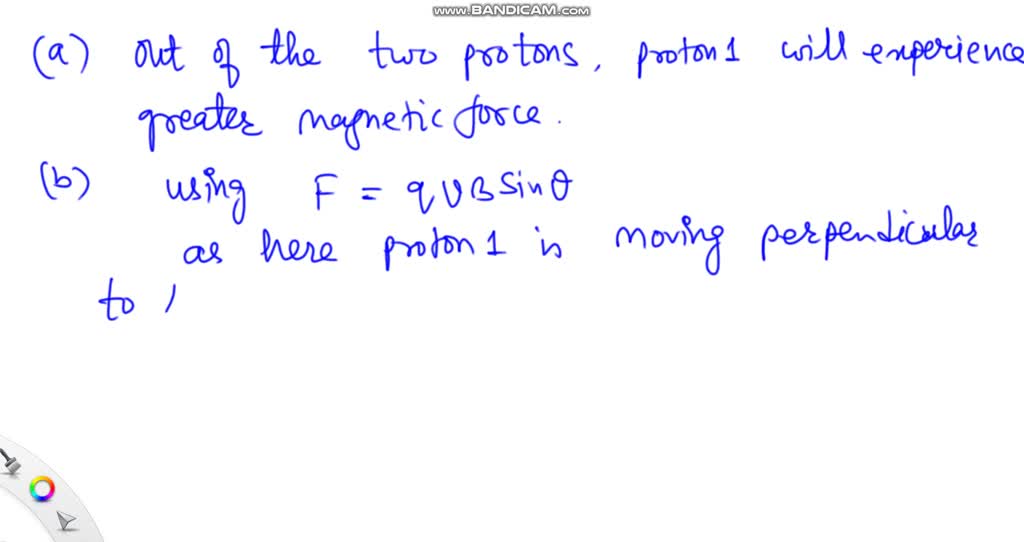 www.BANDICAM.com
(a) out of the two protons, proton 1 will experience
greater magnetic force.
(b) using F = qvB Sinθ
as here proton 1 is moving perpendicular
to